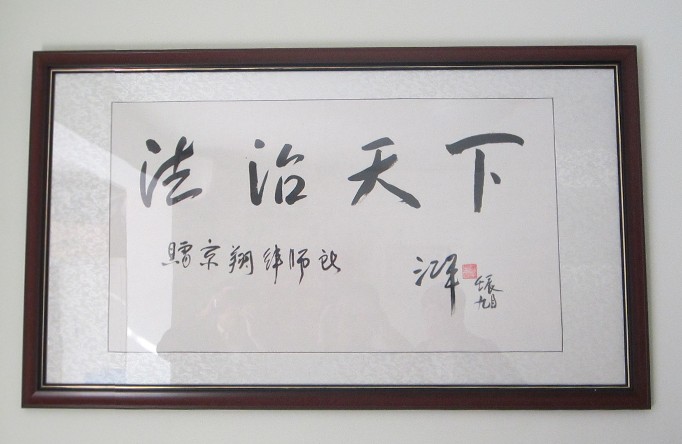 法治天下
赠京翔律师社
江平
壬辰
九月